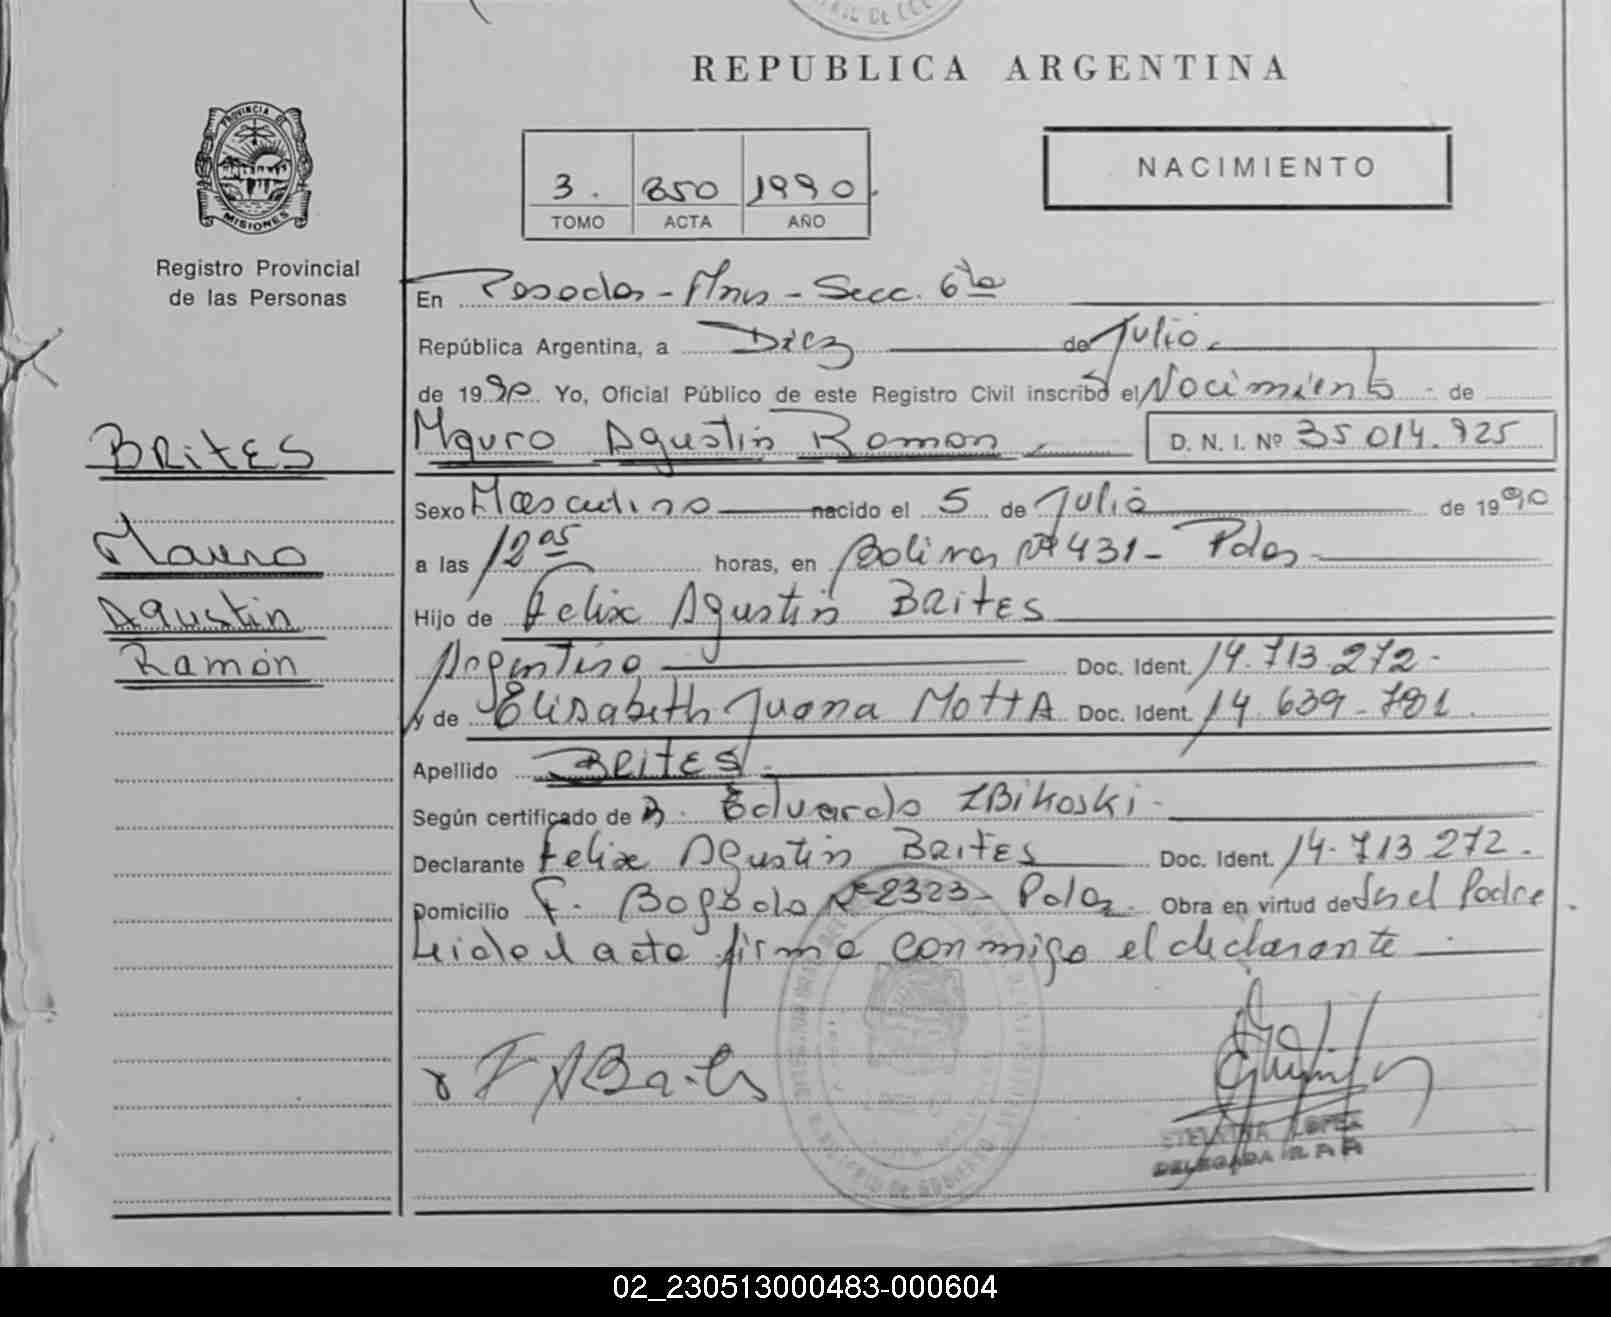 REPUBLICA ARGENTINA
PROVINCIA DE
MISIONES
Registro Provincial
de las Personas
3. 850 1990.
TOMO ACTA AÑO
NACIMIENTO
En Posadas - Mnes - Secc. 6ta
República Argentina, a Diez de Julio.
de 1990 Yo, Oficial Público de este Registro Civil inscribo el Nacimiento - de
BRITES
Mauro Agustin Ramon D. N. I. Nº 35 014.925
Sexo Masculino nacido el 5 de Julio de 1990
Mauro
a las 12 05 horas, en Bolivar Nº 431 - Pdas
Agustin
Hijo de Felix Agustin BRITES
Ramón
Argentino Doc. Ident. 14.713.272-
y de Elisabeth Juana MOTTA Doc. Ident. 14.639-781
Apellido BRITES.
Según certificado de D. Eduardo ZBikoski-
Declarante Felix Agustin BRITES Doc. Ident. 14.713 272.
Domicilio F. Bogado Nº 2323 - Pdas. Obra en virtud de Ser el Padre
Leida el acta firma conmigo el declarante
F A Brites
LOPEZ
DELEGADA R.P.P.
02_230513000483-000604